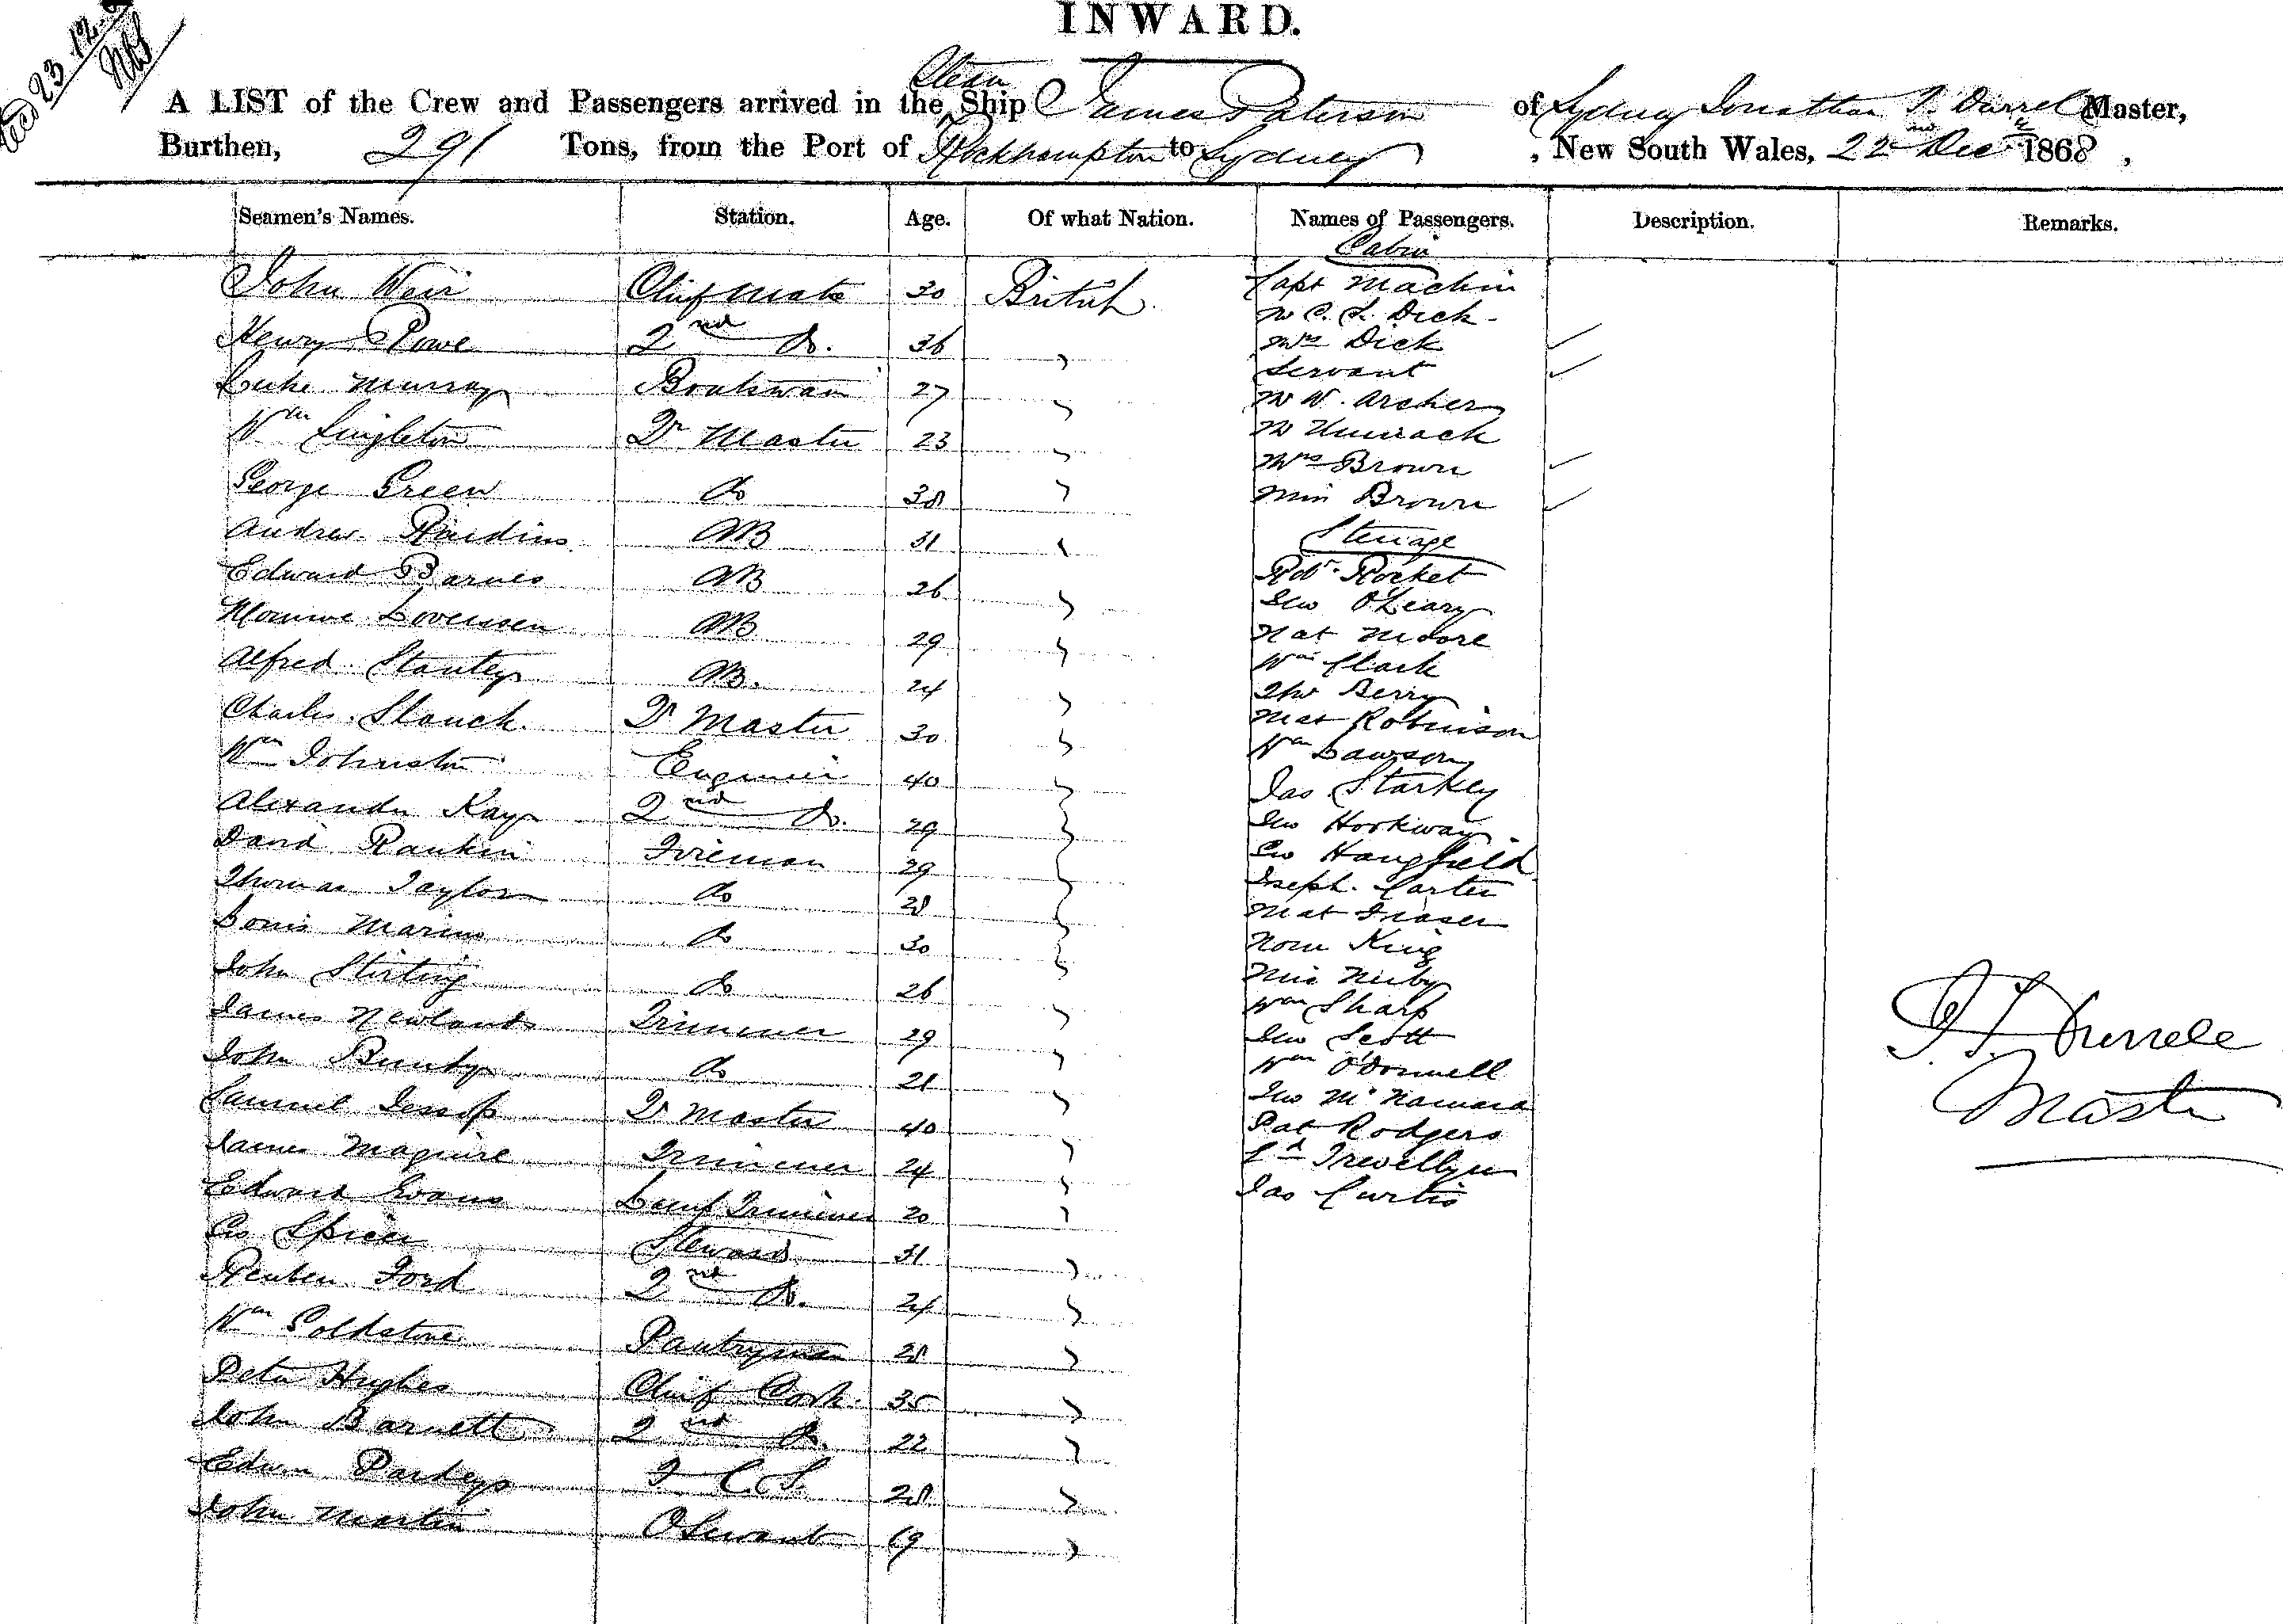 Recd 23.12.
INWARD.
Steam
A LIST of the Crew and Passengers arrived in the Ship James Paterson of Sydney Jonathan T. Durrell Master,
Burthen, 291 Tons, from the Port of Rockhampton to Sydney , New South Wales, 22nd Decr 1868 ,
Seamen's Names. Station. Age. Of what Nation. Names of Passengers. Description. Remarks.
Cabin
John Weir Chief Mate 30 British Capt Machin
Mr C. S. Dick
Henry Rowe 2nd Do. 36 " Mrs Dick
Servant
Luke Murray Boatswain 27 " Mr W. Archer
Wm Singleton Qr Master 23 " Mr
Mrs Brown
George Green Do 38 " Miss Brown
Steerage
Andrew AB 31 "
Edward Barnes AB 26 " Robt Rocket
Jno O'Leary
AB 29 " Nat Moore
Alfred Stanley AB. 24 " Wm Clark
Tho Berry
Charles Slouch Qr Master 30 " Mat Robinson
Wm Johnston Engineer 40 " Wm Lawson
Jas Starkey
Alexander Kay 2nd Do. 29 " Jno Hookway
David Rankin Fireman 29 " Geo
Thomas Taylor Do 28 " Joseph Carter
Mat Fraser
Louis Marino Do 30 " Thom King
John Stirling Do 26 "
Wm Sharp
James Newlands Trimmer 29 " Jno Scott
John Do 21 " Wm O'Donnell
Samuel Jessop Qr Master 40 " Jno McNamara
Pat Rodgers
James Maguire Trimmer 24 " Trewellyn
Edward Evans Lamp Trimmer 20 " Jas Curtis
Geo Spicer Steward 31 "
Reuben Ford 2nd Do. 24 "
Wm Goldstone Pantryman 28 "
Peter Hughes Chief Cook 35 "
John Barnett 2nd Do. 22 "
Edwin Pardey F C S. 28 "
John Martin O Servant 19 "
J. T. Durrell
Master